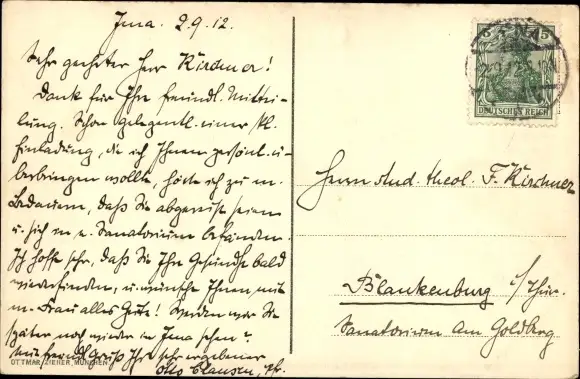 Jena. 2.9.12.
Sehr geehrter Herr Kirchner!
Dank für Ihre freundl. Mittei-
lung. Schon gelegentl. einer kl.
Einladung, die ich Ihnen persönl. ü-
berbringen wollte, hörte ich zu m.
Bedauern, daß Sie abgereist seien
u. sich in e. Sanatorium befänden.
Ich hoffe sehr, daß Sie Ihre Gesundh. bald
wiederfinden, u. wünsche Ihnen, mit
m. Frau alles Gute! Werden wir Sie
später noch wieder in Jena sehn?
Mit freundl. Gruß Ihr sehr ergebener
Otto Clausen, Pf.
OTTMAR ZIEHER, MÜNCHEN
DEUTSCHES REICH
5
Herrn stud. theol. F. Kirchner
Blankenburg i/Thür.
Sanatorium Am Goldberg